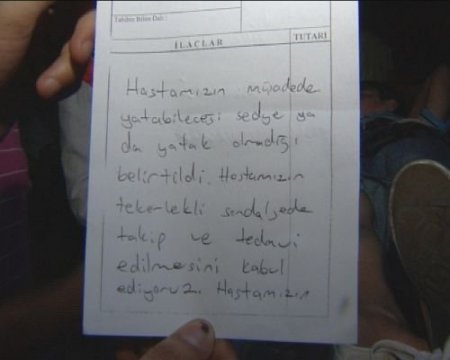 Tabibin Bilen Dah:
İLAÇLAR TUTARI
Hastamızın müşadede
yatabileceği sedye ya
da yatak olmadığı
belirtildi. Hastamızın
tekerlekli sandalyede
takip ve tedavi
edilmesini kabul
ediyoruz. Hastamızın